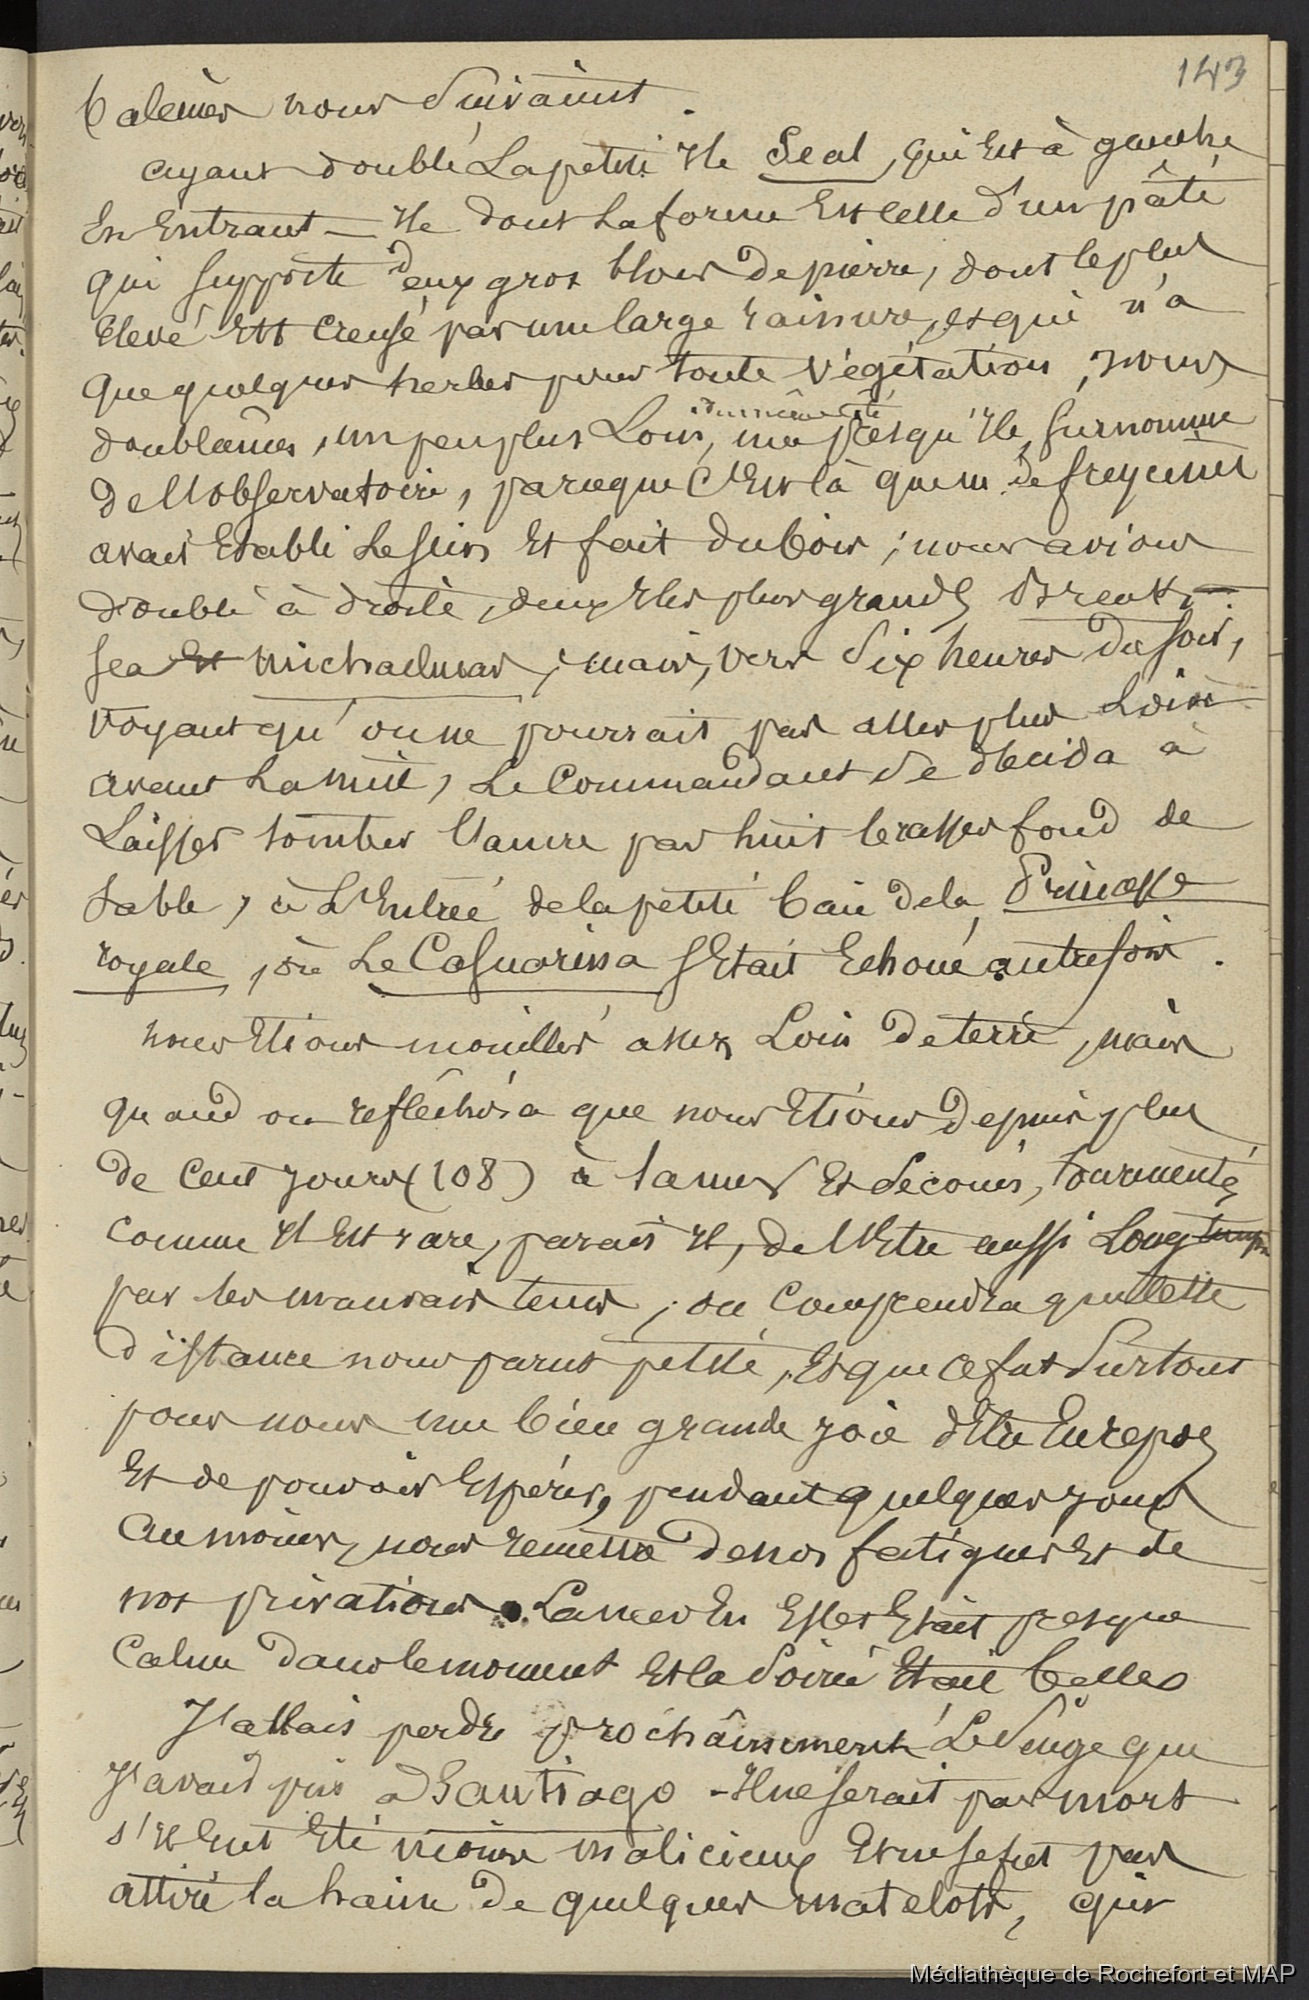 143
baleines nous suivaient.
ayant doublé la petite Ile Seal, qui est à gauche
en entrant — Ile dont la forme est celle d'un pâté
qui supporte deux gros blocs de pierre, dont le plus
élevé est creusé par une large rainure, et qui n'a
que quelques herbes pour toute végétation, nous
doublâmes, un peu plus loin, du même côté, une presqu'Ile surnommée
de l'observatoire, parceque c'est là que m. de freycinet
avait établi le sien et fait du bois; nous avions
doublé à droite, deux Iles plus grandes Break-
sea et michaelmas; mais, vers six heures du soir,
voyant qu'on ne pourrait pas aller plus loin
avant la nuit, le Commandant se décida à
laisser tomber l'ancre par huit brasses fond de
sable, à l'entrée de la petite baie de la Princesse
royale, où Le Casuarina s'était échoué autrefois.
nous étions mouillés assez loin de terre, mais
quand on réfléchira que nous étions depuis plus
de cent jours (108) à la mer et secoués, tourmentés
comme Il est rare, parait Il, de l'être aussi longtemps
par les mauvais tems, on comprendra que cette
distance nous parut petite, et que ce fut surtout
pour nous une bien grande joie d'être en repos
et de pouvoir espérer, pendant quelques jours
au moins, nous remettre de nos fatigues et de
nos privations. La mer en effet était presque
calme dans le moment et la soirée était belle.
J'allais perdre prochâinement le singe que
J'avais pris à Santiago - Il ne serait pas mort
s'Il eut été moins malicieux et ne se fut pas
attiré la haine de quelques matelots, qui
Médiathèque de Rochefort et MAP